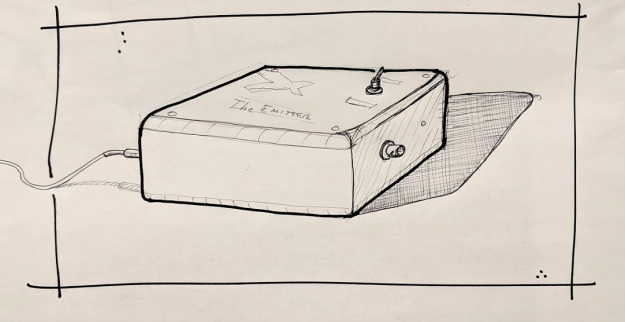 The EMITTER